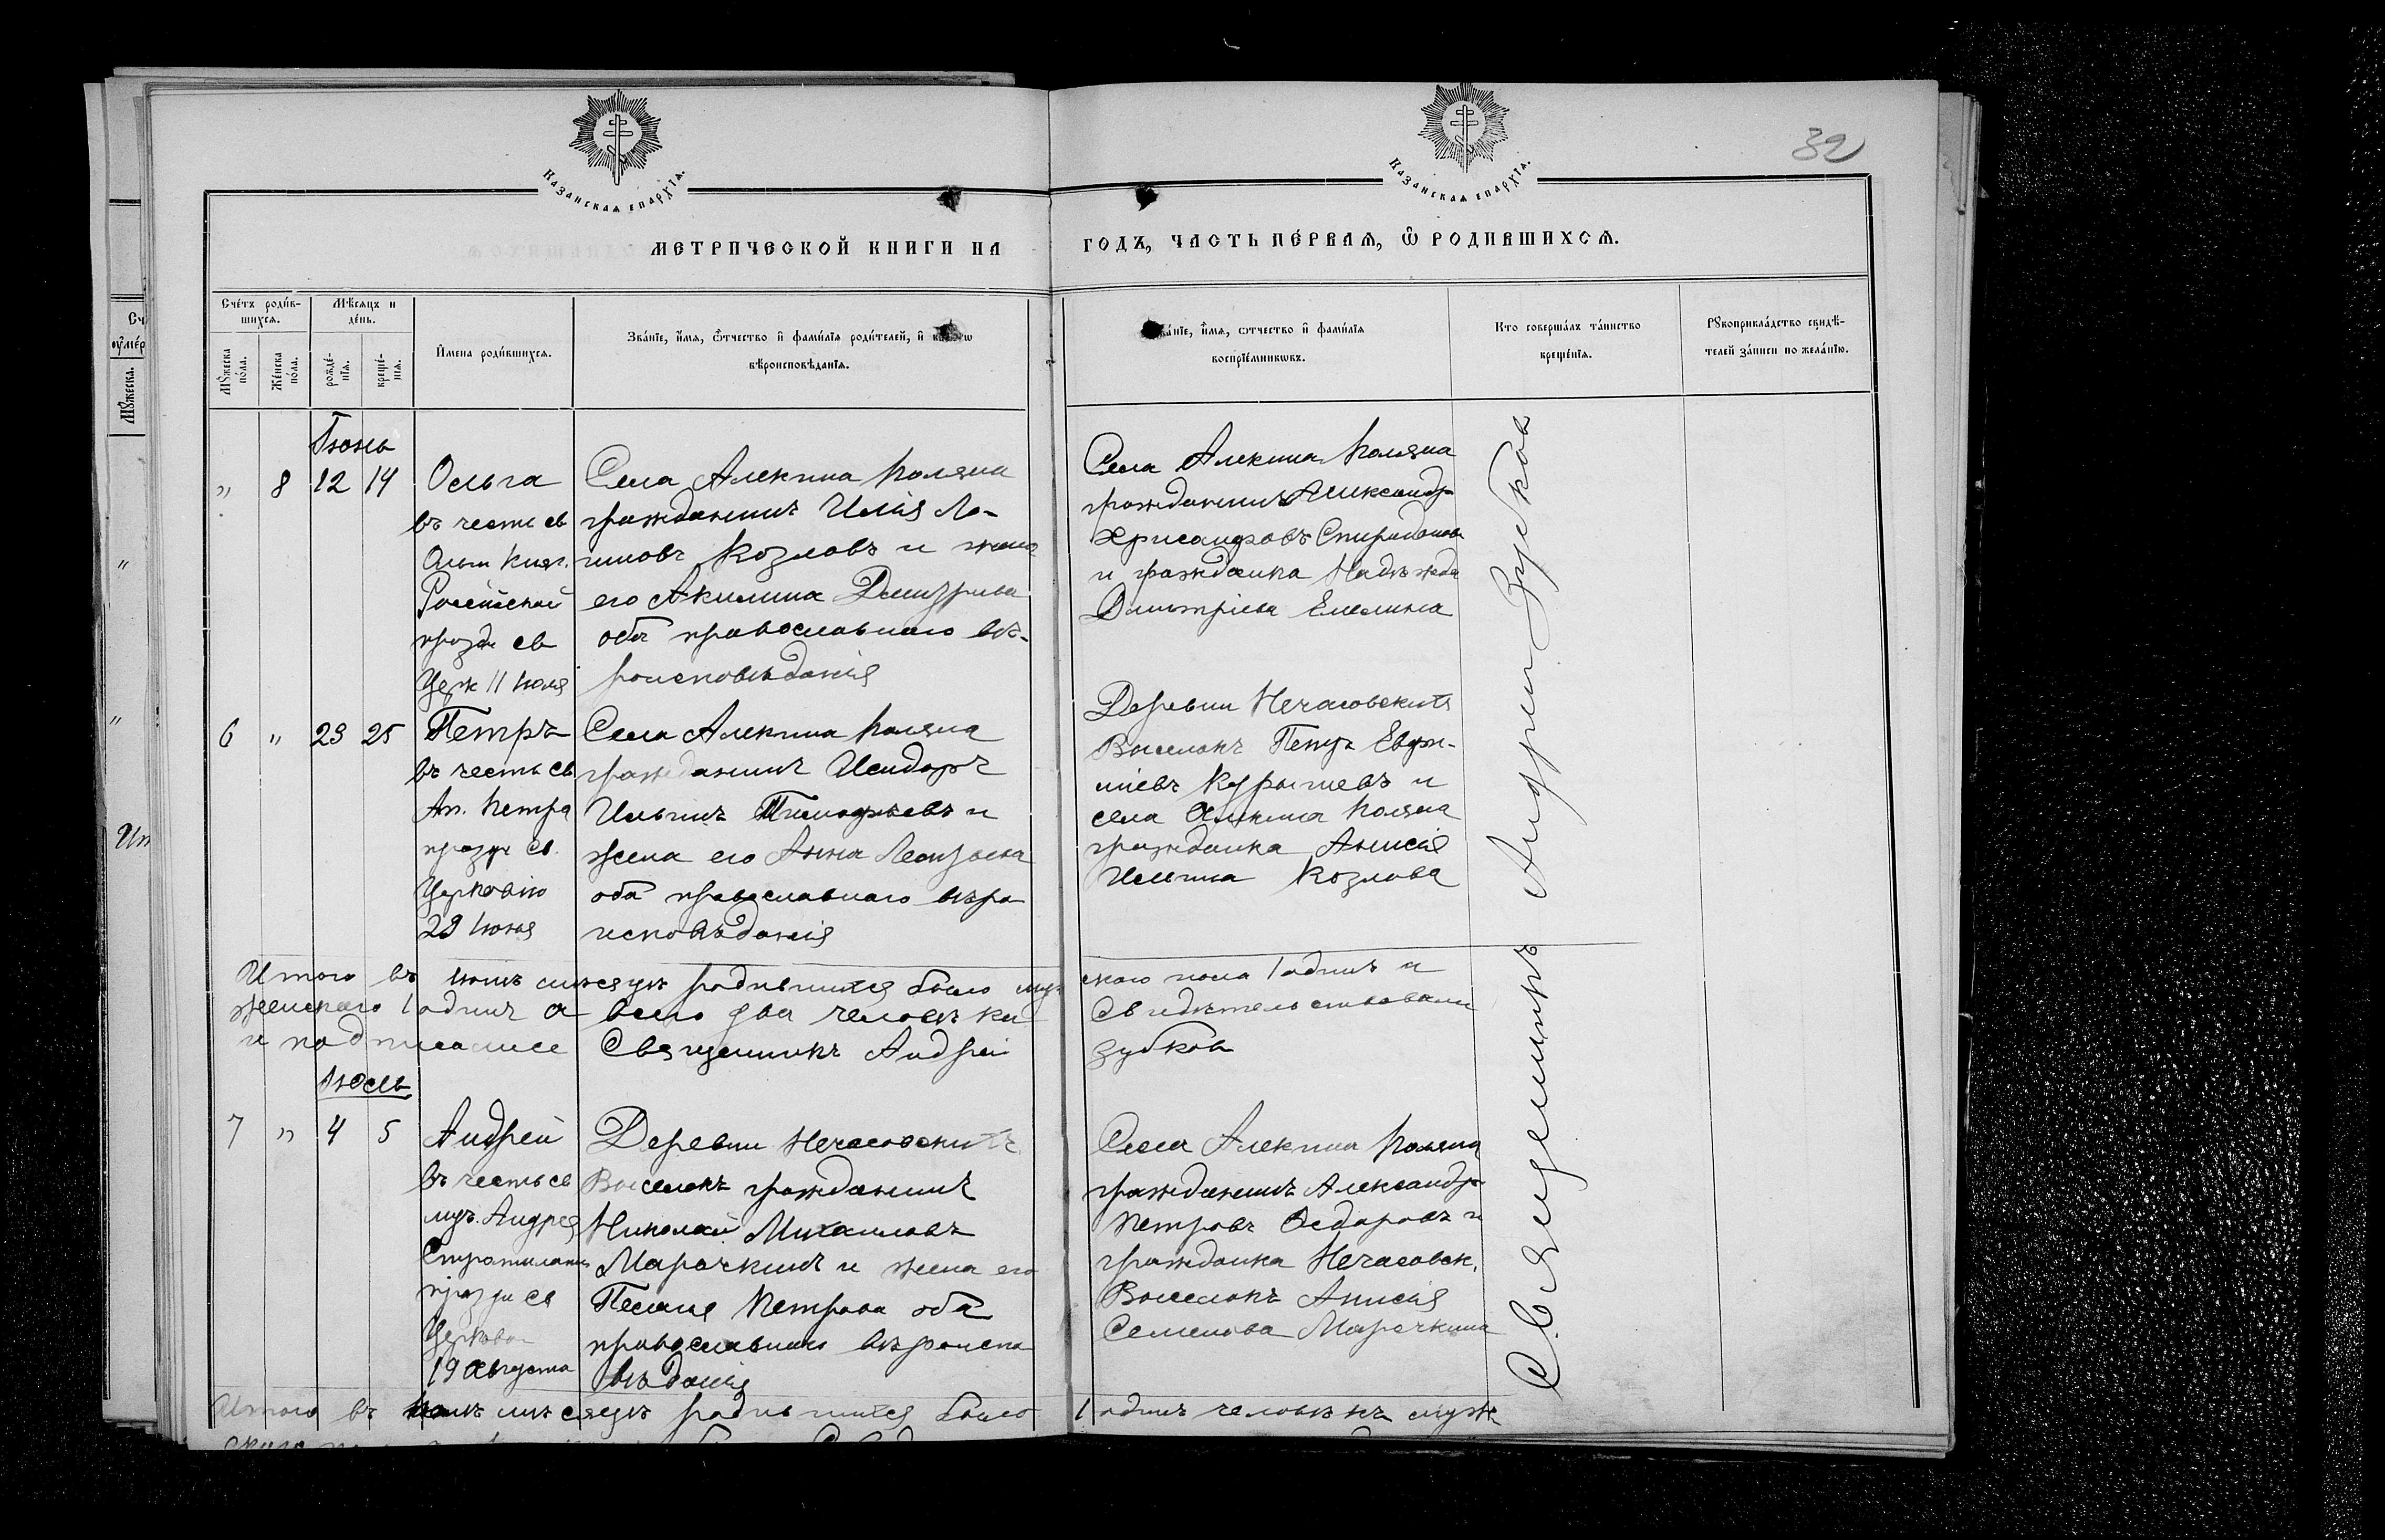 32
Казанская епархїѧ.
Казанская епархїѧ.
МЕТРИЧЕСКОЙ КНИГИ НА ГОДЪ, ЧАСТЬ ПЕ́РВАѦ, Ѿ РОДИВШИХСѦ.
Сче́тъ роди́вшихсѧ.
Мѣ́сѧцъ и де́нь.
Мꙋжеска по́ла.
Же́нска по́ла.
рожде́нїѧ.
креще́нїѧ.
И҆мена роди́вшихсѧ.
Зва́нїе, и҆́мѧ, ѻ҆́тчество и҆ фами́лїѧ роди́телей, и҆
вѣроисповѣ́данїѧ.
и҆́мѧ, ѻтчество и҆ фами́лїѧ
воспрїе́мникѡвъ.
Кто соверша́лъ та́инство
креще́нїѧ.
Рꙋкоприкла́дство свидѣ́-
телей за́писи по жела́нїю.
Іюнь
" 8 12 14
Ольга
въ честь св
Ольги Княг.
Россійской
празд св
Церк 11 Іюля
Села Алекина Поляна
гражданинъ Илія Ло-
гиновъ Козловъ и жена
его Акилина Димитриева
оба православнаго вѣ-
роисповѣданія
Села Алекина Поляна
гражданинъ Александръ
Хрисанфовъ Спиридонов
и гражданка Надежда
Димитріева Емелина
6 " 23 25
Петръ
въ честь св
Ап. Петра
праздн св.
Церковію
29 Іюня
Села Алекина Поляна
гражданинъ Исидоръ
Ильинъ Тимофѣевъ и
жена его Анна
оба православнаго вѣро
исповѣданія
Деревни Нечасовскихъ
Выселокъ Петръ Евфи-
міевъ Курышевъ и
села Алекина Поляна
гражданка Анисія
Ильина Козлова
Итого въ Іюнѣ мѣсяцѣ родившихся было муж скаго пола 1 одинъ и
женскаго 1 одинъ а всего два человѣка Свидѣтельствовали
и подписалсе Священникъ Андрей Зубков
Іюль
7 " 4 5
Андрей
въ честь св
муч. Андрея
Стратилата
праздн св
Церковью
19 Августа
Деревни Нечасовскихъ
Выселокъ гражданинъ
Николай Михаиловъ
Марочкинъ и жена его
Пелагея Петрова оба
православнаго вѣроиспо
вѣданія
Села Алекина Поляна
гражданинъ Александръ
Петровъ Ѳедоровъ и
гражданка Нечасовск.
Выселокъ Анисія
Семенова Марочкина
Священникъ Андрей Зубков
Итого въ мѣсяцѣ родившихся было 1 одинъ человѣкъ муж